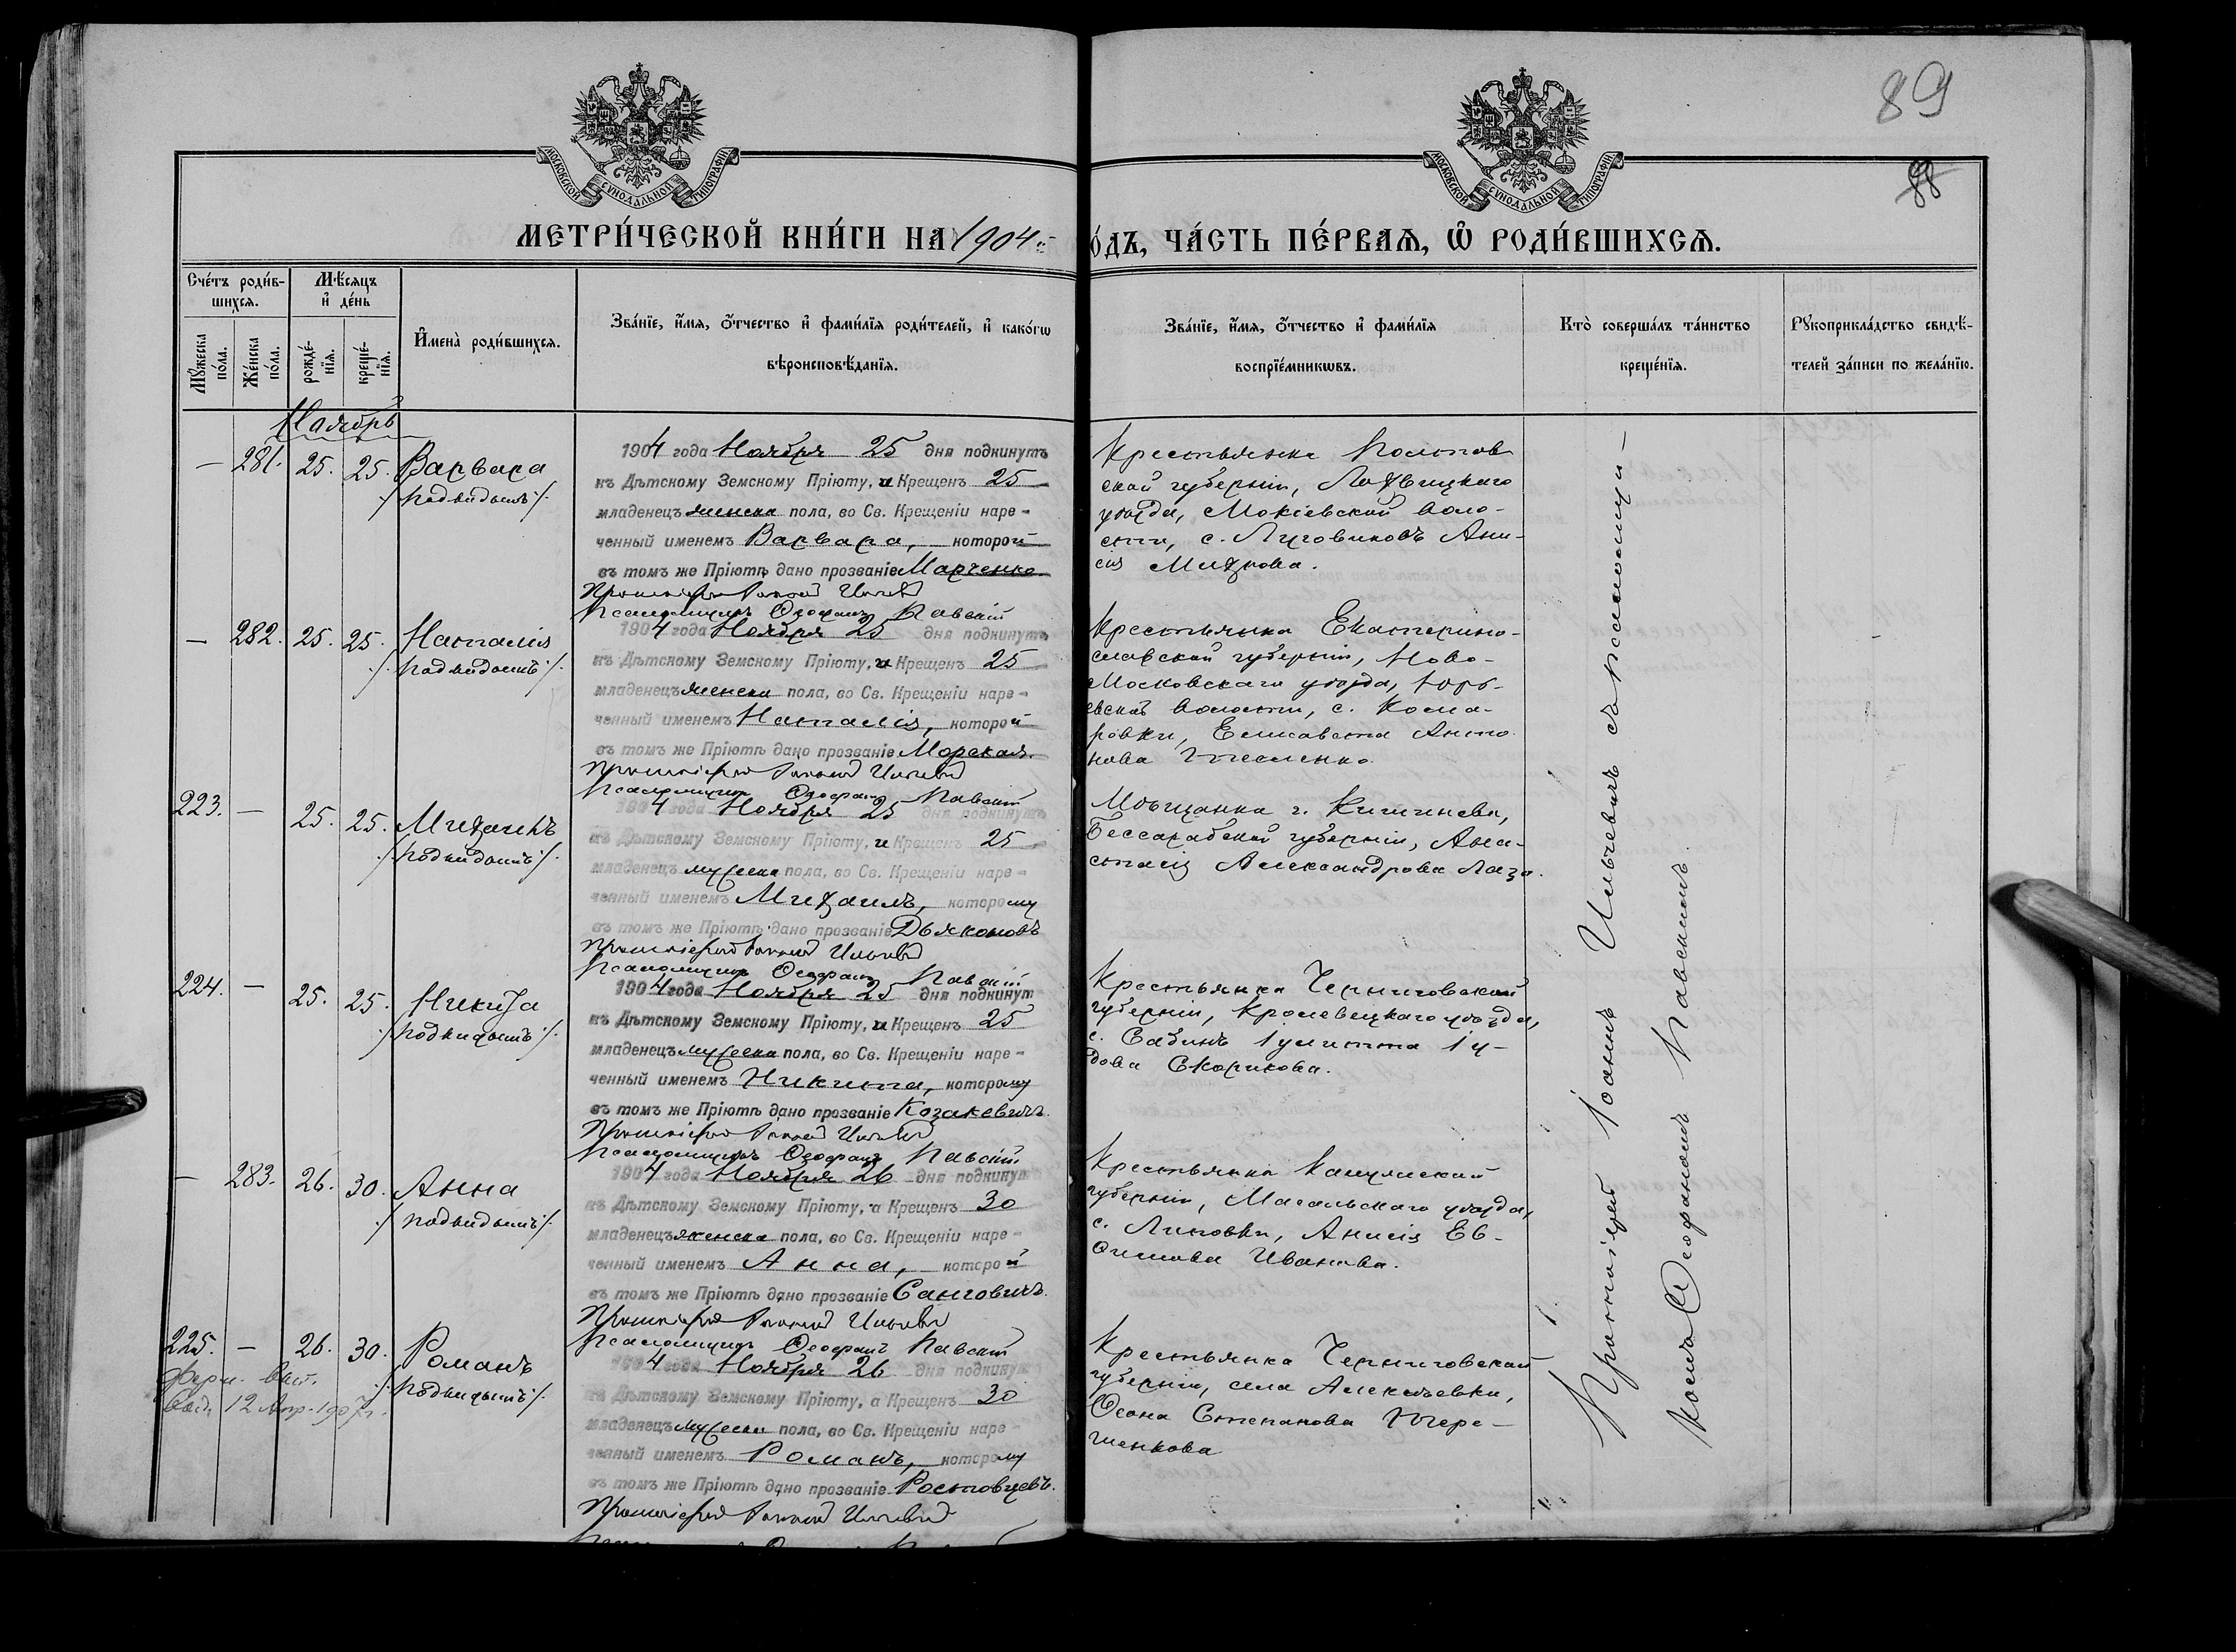 89
88
МОСКОВСКОЙ СѴНОДАЛЬНОЙ ТИПОГРАФІИ
МОСКОВСКОЙ СѴНОДАЛЬНОЙ ТИПОГРАФІИ
МЕТРИ́ЧЕСКОЙ КНИ́ГИ НА 1904 й
О́ДЪ, ЧА́СТЬ ПЕ́РВАЯ, Ѡ РОДИ́ВШИХСЯ.
Сче́тъ роди́в-
шихся.
Мѣ́сяцъ
и҆ де́нь
Мꙋ́жеска по́ла.
Же́нска по́ла.
рожде́-нїѧ.
креще́-нїѧ.
И҆мена̀ роди́вшихся.
Зва́нїе, и҆́мѧ, ѻ҆́тчество и҆ фами́лїѧ роди́телей, и҆ како́гѡ
вѣроисповѣ́данїѧ.
Зва́нїе, и҆́мѧ, ѻ҆́тчество и҆ фами́лїѧ
воспрїе́мникѡвъ.
Кто̀ соверша́лъ та́инство
креще́нїѧ.
Рꙋкоприкла́дство свидѣ́-
телей за́писи по жела́нїю.
Ноябрь
— 281. 25. 25. Варвара
/подкидышъ/.
1904 года Ноября 25 дня подкинутъ
къ Дѣтскому Земскому Пріюту, и Крещенъ 25
младенецъ женска пола, во Св. Крещеніи наре-
ченный именемъ Варвара, которой
въ томъ же Пріютѣ дано прозваніе Марченко
Протоіерей Іоаннъ Ильичевъ
Псаломщикъ Ѳеофанъ Павскій
Крестьянка Полтав
ской губерніи, Лохвицкаго
уѣзда, Мокіевской воло-
сти, с. Луговиковъ Ани-
сія Михнова.
— 282. 25. 25. Наталія
/подкидышъ/.
1904 года Ноября 25 дня подкинутъ
къ Дѣтскому Земскому Пріюту, и Крещенъ 25
младенецъ женска пола, во Св. Крещеніи наре-
ченный именемъ Наталія, которой
въ томъ же Пріютѣ дано прозваніе Морская.
Протоіерей Іоаннъ Ильичевъ
Псаломщикъ Ѳеофанъ Павскій
Крестьянка Екатерино-
славской губерніи, Ново-
Московскаго уѣзда, Юрь-
евской волости, с. Кома-
ровки, Елисавета Анто
нова Тесленко.
223. — 25. 25. Михаилъ
/подкидышъ/.
1904 года Ноября 25 дня подкинутъ
къ Дѣтскому Земскому Пріюту, и Крещенъ 25
младенецъ мужеска пола, во Св. Крещеніи наре-
ченный именемъ Михаилъ, которому
въ томъ же Пріютѣ дано прозваніе Дьяконовъ
Протоіерей Іоаннъ Ильичевъ
Псаломщикъ Ѳеофанъ Павскій
Мѣщанка г. Кишинева,
Бессарабской губерніи, Ана-
стасія Александрова Лаза.
224. — 25. 25. Никита
/подкидышъ/.
1904 года Ноября 25 дня подкинут
къ Дѣтскому Земскому Пріюту, и Крещенъ 25
младенецъ мужеска пола, во Св. Крещеніи наре-
ченный именемъ Никита, которому
въ томъ же Пріютѣ дано прозваніе Козакевичъ.
Протоіерей Іоаннъ Ильичевъ
Псаломщикъ Ѳеофанъ Павскій
Крестьянка Черниговской
губерніи, Кролевецкаго уѣзда,
с. Іулитта Іу-
дова Скорикова.
— 283. 26. 30. Анна
/подкидышъ/.
1904 года Ноября 26 дня подкинут
къ Дѣтскому Земскому Пріюту, а Крещенъ 30
младенецъ женска пола, во Св. Крещеніи наре-
ченный именемъ Анна, которой
въ томъ же Пріютѣ дано прозваніе Санговичъ.
Протоіерей Іоаннъ Ильичевъ
Псаломщикъ Ѳеофанъ Павскій
Крестьянка Калужской
губерніи, Масальскаго уѣзда,
с. Липовки, Анисія Ев-
ѳимова Иванова.
225. — 26. 30. Романъ
/подкидышъ/.
12 Апр. 1907 г.
1904 года Ноября 26 дня подкинут
къ Дѣтскому Земскому Пріюту, а Крещенъ 30
младенецъ мужеска пола, во Св. Крещеніи наре-
ченный именемъ Романъ, которому
въ томъ же Пріютѣ дано прозваніе Ростовцевъ.
Протоіерей Іоаннъ Ильичевъ
Крестьянка Черниговской
губерніи, села Алексѣевки,
Ѳеона Степанова Тере-
шенкова
Протоіерей Іоаннъ Ильичевъ съ псаломщи-
комъ Ѳеофаномъ Павскимъ.